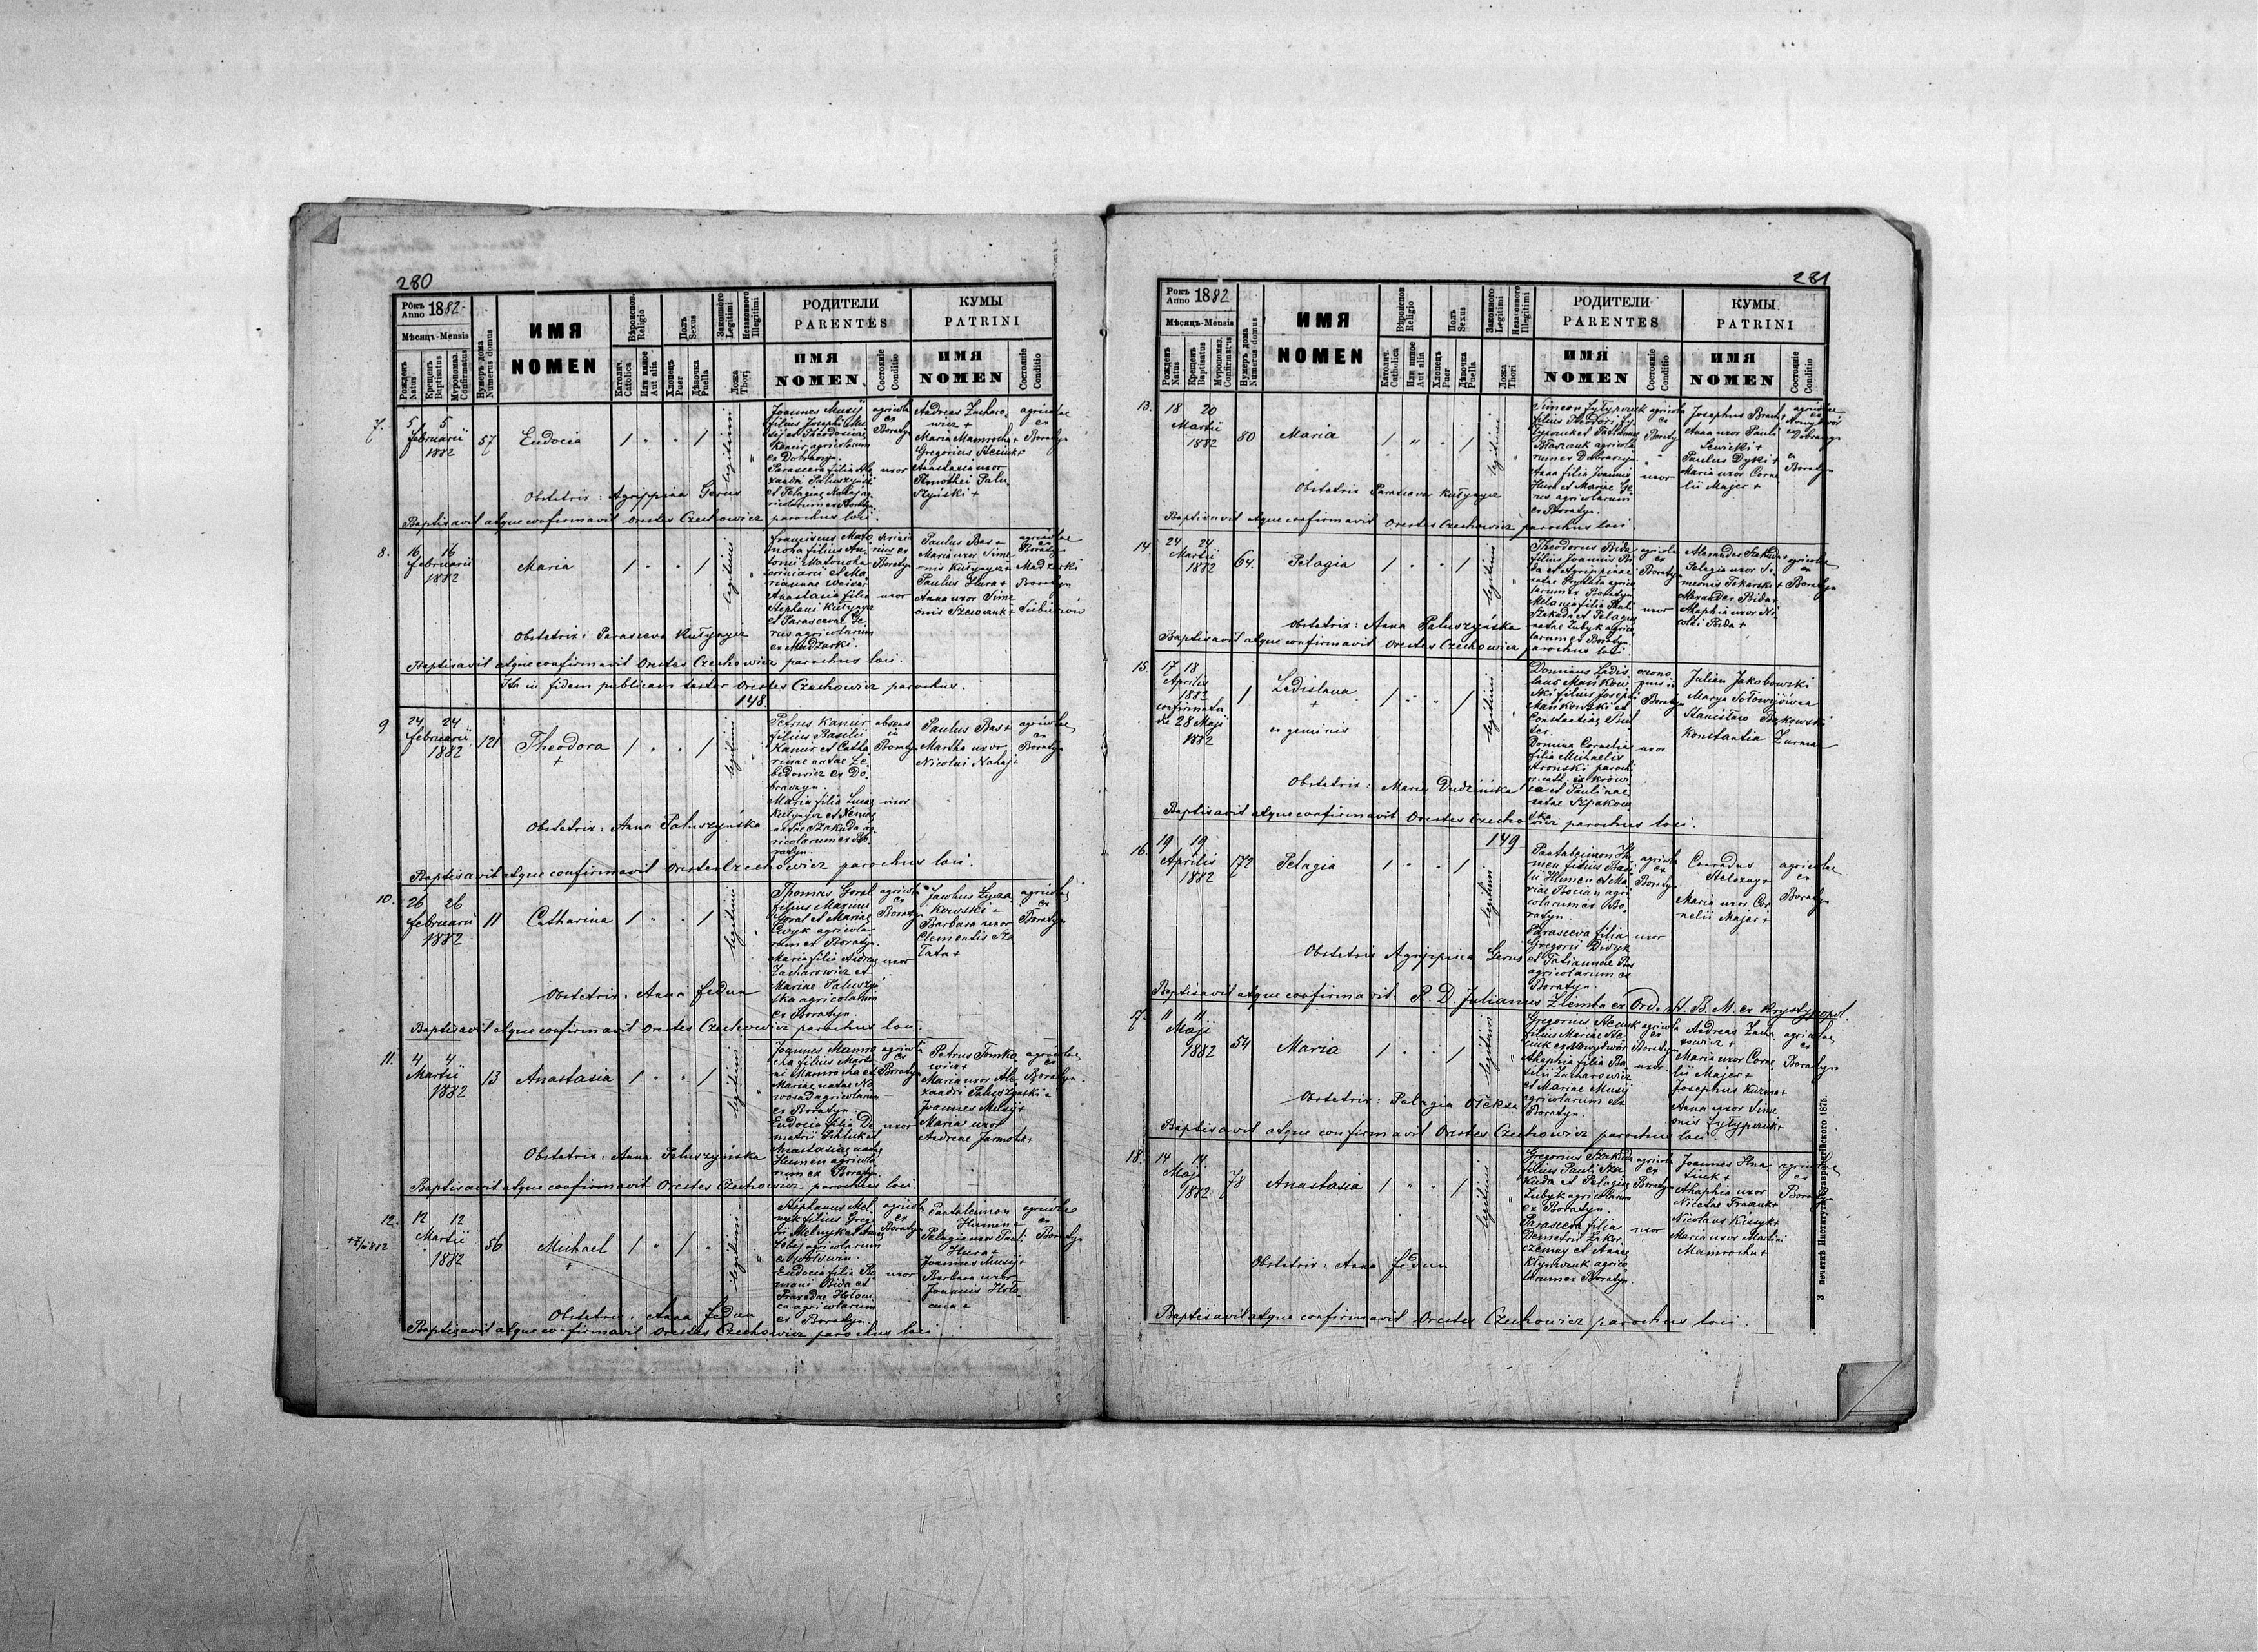 280
Рокъ Anno 1882
Мѣсяцъ-Mensis
Рожденъ Natus
Крещенъ Baptisatus
Муропомаз. Confirmatus
Нумеръ дома Numerus domus
ИМЯ
NOMEN
Вѣроиспов. Religio
Католич. Catolica
Или инное Aut alia
Полъ Sexus
Хлопецъ Puer
Дѣвочка Puella
Законного Legitimi
Незаконного Illegitimi
Ложа Thorj
РОДИТЕЛИ
PARENTES
ИМЯ
NOMEN
Состояніе Conditio
КУМЫ
PATRINI
ИМЯ
NOMEN
Состояніе Conditio
7. 5 5
februarii
1882
57 Eudocia
legitimi
Joannes Musij
filius Josephi
agricolarum
ex Dobraczyn.
uxor
agricola
ex
Boratyn
Andreas Zacharo
wicz +
Maria Mamrocha +
Gregorius
Anastasia uxor
Timothei Palu
szyński +
agricolae
ex
Boratyn
Obstetrix: Agrippina Gerus
Baptisavit atque confirmavit Orestes Czechowicz parochus loci.
8. 16 16
februarii
1882
Maria
legitimi
Franciscus
Anastasia filia
Stephani Kułynycz
et Parascevae Ge
rus agricolarum
ex Madzarki.
uxor
Paulus Bas +
Maria uxor Sime
onis Kułynycz +
Paulus Hura +
Anna uxor Sime
onis Szewczuk +
agricolae
Boratyn
Madzarki
Boratyn
Obstetrix: Parasceva Kułynycz
Baptisavit atque confirmavit Orestes Czechowicz parochus loci.
Ita in fidem publicam testor Orestes Czechowicz parochus.
148.
9 24 24
februarii
1882
121 Theodora
+
legitimi
Petrus Kanur
filius Basilii
Kanur et Catha
rinae natae Le
bedowicz ex Do
braczyn.
Maria filia Lucae
Kułynycz et Xeniae
natae Szakuda ag
ricolarum ex Bo
ratyn.
absens
in
Boratyn
uxor
Paulus Bas +
Martha uxor
Nicolai Nahaj +
agricolae
ex
Boratyn
Obstetrix: Anna Paluszyńska
Baptisavit atque confirmavit Orestes Czechowicz parochus loci.
10. 26 26
februarii
1882
11 Catharina
legitimi
Thomas Goral
filius Maximi
Goral et Mariae
agricola
rum ex Boratyn.
Maria filia Andreae
Zacharowicz et
Mariae Paluszyń
ska agricolarum
ex Boratyn.
agricola
ex
Boratyn
uxor
Jacobus
kowski +
Barbara uxor
Clementis
agricolae
ex
Boratyn
Obstetrix: Anna Fedun
Baptisavit atque confirmavit Orestes Czechowicz parochus loci.
11. 4 4
Martii
1882
13 Anastasia
legitimi
Joannes Mamro
cha filius Marti
ni Mamrocha et
Mariae natae No
wosad agricolarum
ex Boratyn.
Eudocia filia De
metrii
Anastasiae natae
Humen agricola
rum ex Boratyn.
agricola
ex
Boratyn
uxor
Petrus Tomke
wicz +
Maria uxor Ale
xandri Paluszynski +
Joannes Musij +
Maria uxor
Andreae Jarmoła +
agricolae
ex
Boratyn.
Obstetrix: Anna Paluszyńska
Baptisavit atque confirmavit Orestes Czechowicz parochus loci.
12. 12 12
Martii
1882
56 Michael
+
legitimi
Stephanus Mel
nyk filius Grego
rii Melnyk et Annae
agricolarum
Eudocia filia Ro
mani Bida et
Praxedae Hołowi
ca agricolarum
ex Boratyn.
agricola
ex
Boratyn
uxor
Pantaleimon
Humen +
Pelagia uxor Pauli
Hura +
Joannes Musij +
Barbara uxor
Joannis Hoło
wica +
agricolae
ex
Boratyn
Obstetrix: Anna Fedun
Baptisavit atque confirmavit Orestes Czechowicz parochus loci.
281
Рокъ Anno 1882
Мѣсяцъ-Mensis
Рожденъ Natus
Крещенъ Baptisatus
Муропомаз. Confirmatus
Нумеръ дома Numerus domus
ИМЯ
NOMEN
Вѣроіспов Religio
Католич. Catholica
Или инное Aut alia
Полъ Sexus
Хлопецъ Puer
Дѣвочка Puella
Законного Legitimi
Незаконного Illegitimi
Ложа Thori
РОДИТЕЛИ
PARENTES
ИМЯ
NOMEN
Состояніе Conditio
КУМЫ
PATRINI
ИМЯ
NOMEN
Состояніе Conditio
13. 18 20
Martii
1882
80 Maria
legitimi
Simeon Żyłypczuk
filius Theodori Ży
łypczuk et Tatianae
agricola
rum ex Dobraczyn.
Anna filia Joannis
Hura et Mariae Ge
rus agricolarum
ex Boratyn.
agricola
ex
Boratyn
uxor
Josephus
Anna uxor Pauli
Lewicki +
Paulus Dyki +
Maria uxor Corne
lii Majer +
agricolae
ex
Nowydwór
Dobraczyn
ex
Boratyn
Obstetrix Parasceva Kułynycz
Baptisavit atque confirmavit Orestes Czechowicz parochus loci
14. 24 24
Martii
1882
64. Pelagia
legitimi
Theodorus Bida
filius Joannis Bi
da et Agrippinae
natae agrico
larum ex Boratyn
Melania filia Pauli
Szakuda et Pelagiae
natae Zubyk agrico
larum ex Boratyn
agricola
ex
Boratyn
uxor
Alexander Szakuda +
Pelagia uxor Si
meonis Tokarski +
Alexander Bida +
Ahaphia uxor Ni
colai Bida +
agricolae
ex
Boratyn
Obstetrix: Anna Paluszyńska
Baptisavit atque confirmavit Orestes Czechowicz parochus loci.
15. 17 18
Aprilis
1882
confirmata
die 28 Maji
1882
1 Ladislava
+
ex geminis
legitimi
Dominus Ladis
laus Mańkow
ski filius Josephi
Mańkowski et
Constantiae
Domina Cornelia
filia Michaelis
parochi
et Paulinae
natae Szpakow
ska
oecono
mus in
Boratyn
uxor
Julian Jakobowski
Marya Sołowijówna
Stanisław
Konstantia
Obstetrix: Maria Dudzińska
Baptisavit atque confirmavit Orestes Czechowicz parochus loci.
149
16. 19 19
Aprilis
1882
172 Pelagia
legitimi
Pantaleimon Hu
men filius Basi
lii Humen et Ma
riae Bocian agri
colarum ex Bo
ratyn.
Parasceva filia
Gregorii Didyk
et Tatiannae Bas
agricolarum ex
Boratyn.
agricola
ex
Boratyn
uxor
Conradus
Maria uxor Cor
nelii Majer +
agricolae
ex
Boratyn
Obstetrix Agrippina Gerus
Baptisavit atque confirmavit: R. D. Julianus Zlemba ex Ord. H. B. M. ex Krystypopol.
17. 11 11
Maji
1882
54 Maria
legitimi
Gregorius
filius Mariae
ex Nowydwór
Ahaphia filia Ba
silii Zacharowicz
et Mariae Musij
agricolarum ex
Boratyn.
agricola
ex
Boratyn
uxor
Andreas Zacha
rowicz +
Maria uxor Corne
lii Majer +
Josephus Kuzma +
Anna uxor Sime
onis Żyłypczuk +
agricolae
ex
Boratyn
Obstetrix: Pelagia Ołeksa
Baptisavit atque confirmavit Orestes Czechowicz parochus loci
18. 14 14
Maji
1882
78 Anastasia
legitimi
Gregorius Szakuda
filius Pauli Sza
kuda et Pelagiae
Zubyk agricolarum
ex Boratyn.
Parasceva filia
Demetrii Zakor
czemny et Annae
Kłymczuk agrico
larum ex Boratyn.
agricola
ex
Boratyn
uxor
Joannes Hna
tiuk +
Ahaphia uxor
Nicetae Franuk +
Nicolaus Kuzyk +
Maria uxor Martini
Mamrocha +
agricolae
ex
Boratyn
Obstetrix: Anna Fedun
Baptisavit atque confirmavit Orestes Czechowicz parochus loci.
З печатнѣ Института Ставропигійского 1875.